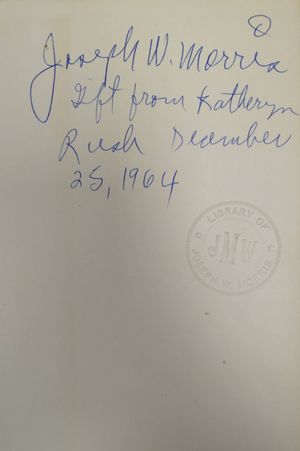 Joseph W. Morris
Gift from Katheryn
Rush December
25, 1964
LIBRARY OF
JMW
JOSEPH W. MORRIS